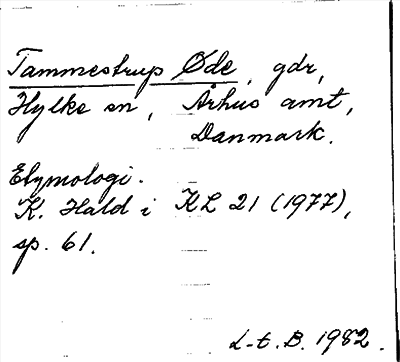 Tammestrup Øde, gdr,
Hylke sn, Århus amt,
Danmark.
Etymologi.
K. Hald i KL 21 (1977),
sp. 61.
L-t. B. 1982.